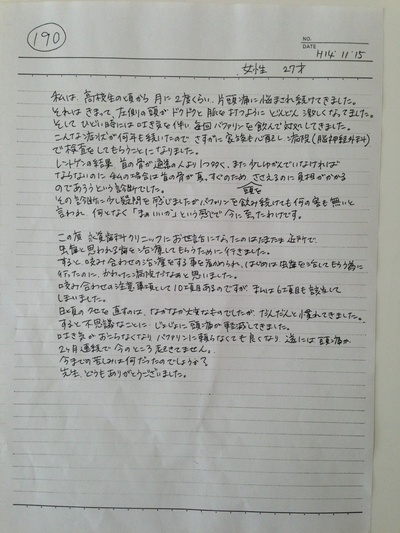 190
NO.
DATE H14・11・15
女性 27才
私は、高校生の頃から 月に2度くらい、片頭痛に悩まされ続けてきました。
それはきまって、左側の頭が ドクドクと 脈を打つように どんどん 激しくなってました。
そして ひどい時には 吐き気を伴い 毎回 バファリンを飲んで対処してきました。
こんな症状が 何年も続いたので さすがに 家族も心配し 病院(脳神経外科)
で 検査をしてもらうことになりました。
レントゲンの結果、首の骨が通常の人より1つ多く、また少しゆがんでいなければ
ならないのに 私の場合は 首の骨が真っすぐのため、頭を ささえるのに 負担がかかる
のであろうという診断でした。
その診断に少し疑問を感じましたが バファリンを飲み続けても何の害も無いと
言われ 何となく「まぁいいか」という感じで 今に至ったわけです。
この度 歯科クリニックに お世話になったのは たまたま 近所で、
虫歯と思われる歯を治療してもらうために行きました。
すると 咬み合わせの治療をする事を薦められ、はじめは 虫歯を治してもらう為に
行ったのに、かわった病院だなぁと思いました。
咬み合わせの注意事項として 10項目あるのですが、私は 6項目も該当して
しまいました。
日頃のクセを直すのは、なかなか大変なものでしたが、だんだんと慣れてきました。
すると 不思議なことに、じょじょに 頭痛が軽減してきました。
吐き気が おこらなくなり バファリンに頼らなくても良くなり、遂には 頭痛が
2ヶ月連続で 今のところ 起きてません。
今までの苦しみは何だったのでしょうか?
先生、どうもありがとうございました。